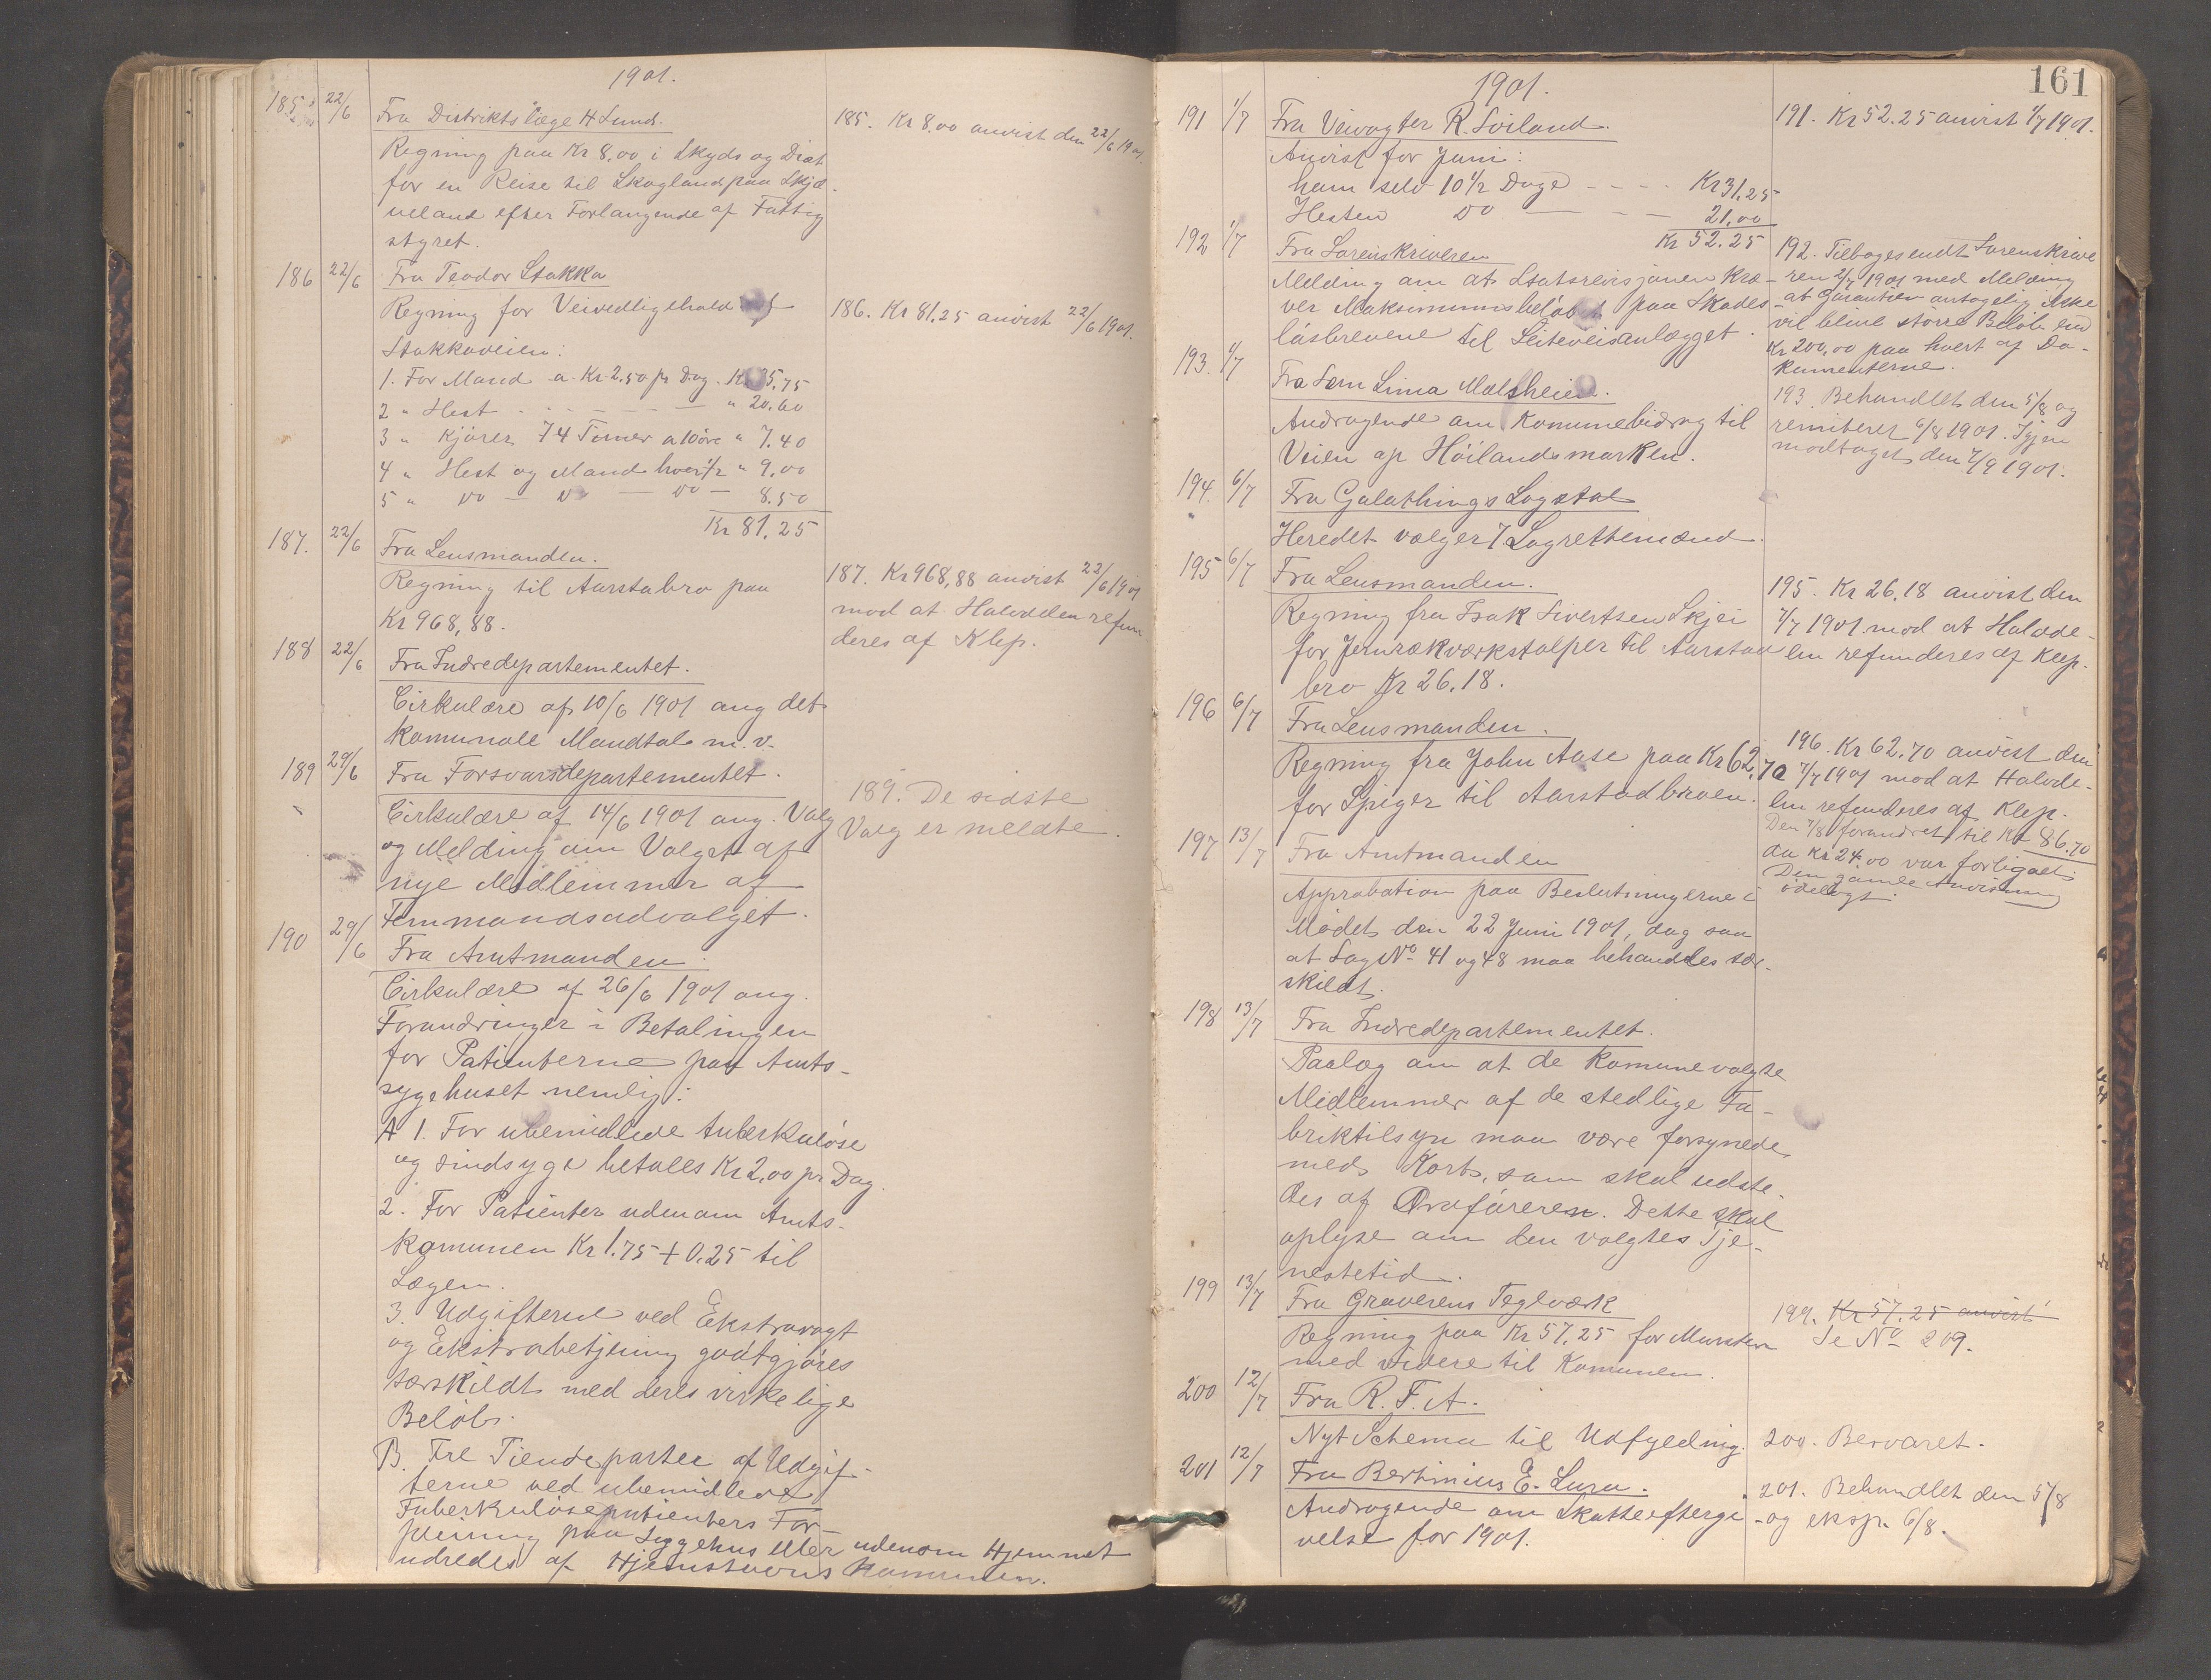 1901.
185 22/6 Fra Distriktslæge H Lund.
Regning paa Kr 8,00 i Skyds og Diæt
for en Reise til Skogland paa Skjæ-
veland efter Forlangende af Fattig
styret.
185. Kr 8,00 anvist den 22/6 1901.
186 22/6 Fra Teodor Stokka
Regning for Veivedligehold af
Stokkaveien:
1. For Mand a Kr 2,50 pr Dag. Kr 35,75
2 " Hest - - - - - " 20,60
3 " Kjører 74 Timer a 10 öre " 7.40
4 " Hest og Mand hver 1/2 " 9,00
5 " do — do — do — 8.50
Kr 81,25
186. Kr 81,25 anvist 22/6 1901.
187. 22/6 Fra Lensmanden.
Regning til Aarstabro paa
Kr 968,88.
187. Kr 968,88 anvist 22/6 1901
mod at Halvdelen refun
deres af Klep.
188 22/6 Fra Indredepartementet.
Cirkulære af 10/6 1901 ang det
komunale Mandtal m.v.
189 29/6 Fra Forsvarsdepartementet.
Cirkulære af 14/6 1901 ang. Valg
og Melding om Valget af
nye Medlemmer af
Femmandsudvalget.
189. De sidste
Valg er meldte.
190 29/6 Fra Amtmanden.
Cirkulære af 26/6 1901 ang.
Forandringer i Betalingen
for Patienterne paa Amts-
sygehuset nemlig:
A 1. For ubemidlede tuberkuløse
og sindsyge betales Kr 2,00 pr Dag.
2. For Patienter udenom Amts-
komunen Kr 1.75 + 0.25 til
Lægen.
3. Udgifterne ved Ekstravagt
og Ekstrabetjening godtgjøres
særskildt med deres virkelige
Beløb.
B. Fire Tiendeparter af Udgif-
terne ved ubemidlede
Tuberkuløsepatienters For-
pleining paa Sygehus eller udenom Hjemmet
udredes af Hjemstavns Komunen.
161
1901.
191 1/7 Fra Veivogter R. Sviland.
Anvist for Juni:
ham selv 10 1/2 Dage - - - - Kr 31,25
Hesten do — - - — 21,00
Kr 52.25
191. Kr 52.25 anvist 1/7 1901.
192 1/7 Fra Sorenskriveren
Melding om at Statsrevisjonen kræ-
ver Maksimumsbeløbet paa Skades
løsbrevene til Leiteveisanlægget.
192. Tilbagesendt Sorenskrive
ren 2/7 1901 med Melding
at Garantien antagelig ikke
vil blive større Beløb end
Kr 200,00 paa hvert af Do-
kumenterne.
193. 1/7 Fra Sem Lima Malmheim.
Andragende om Komunebidrag til
Veien op Høilandsmarken.
193. Behandlet den 5/8 og
remiteret 6/8 1901. Igjen
modtaget den 7/9 1901.
194. 6/7 Fra Gulathings Lagstol
Heredet vælger 7 Lagrettemænd.
195 6/7 Fra Lensmanden.
Regning fra Isak Sivertsen Skjei
for Jernrækværkstolper til Aarstad
bro Kr 26.18.
195. Kr 26.18 anvist den
7/7 1901 mod at Halvde-
len refunderes af Klep.
196 6/7 Fra Lensmanden.
Regning fra John Aase paa Kr 62,70
for Spiger til Aarstadbroen.
196. Kr 62.70 anvist den
7/7 1901 mod at Halvde-
len refunderes af Klep.
Den 7/8 forandret til Kr 86.70
da Kr 24.00 var forligaet.
Den gamle Anvisning
ødelagt.
197 13/7 Fra Amtmanden
Approbation paa Beslutningerne i
Mødet den 22 Juni 1901, dog saa
at Sag No 41 og 48 maa behandles sær-
skildt.
198 13/7 Fra Indredepartementet.
Paalæg om at de komunevalgte
Medlemmer af de stedlige Fa-
briktilsyn maa være forsynede
med Kort, som skal udste-
des af Ordføreren. Dette skal
oplyse om den valgtes Tje-
nestetid.
199 13/7 Fra Graverens Teglværk
Regning paa Kr 57.25 for Mursten
med videre til Komunen.
199. Kr 57.25 anvist
Se No 209.
200 12/7 Fra R. F. A.
Nyt Schema til Udfylding.
200. Besvaret.
201 12/7 Fra Bertinius E. Lura.
Andragende om Skatteeftergi
velse for 1901.
201. Behandlet den 5/8
og eksp. 6/8.